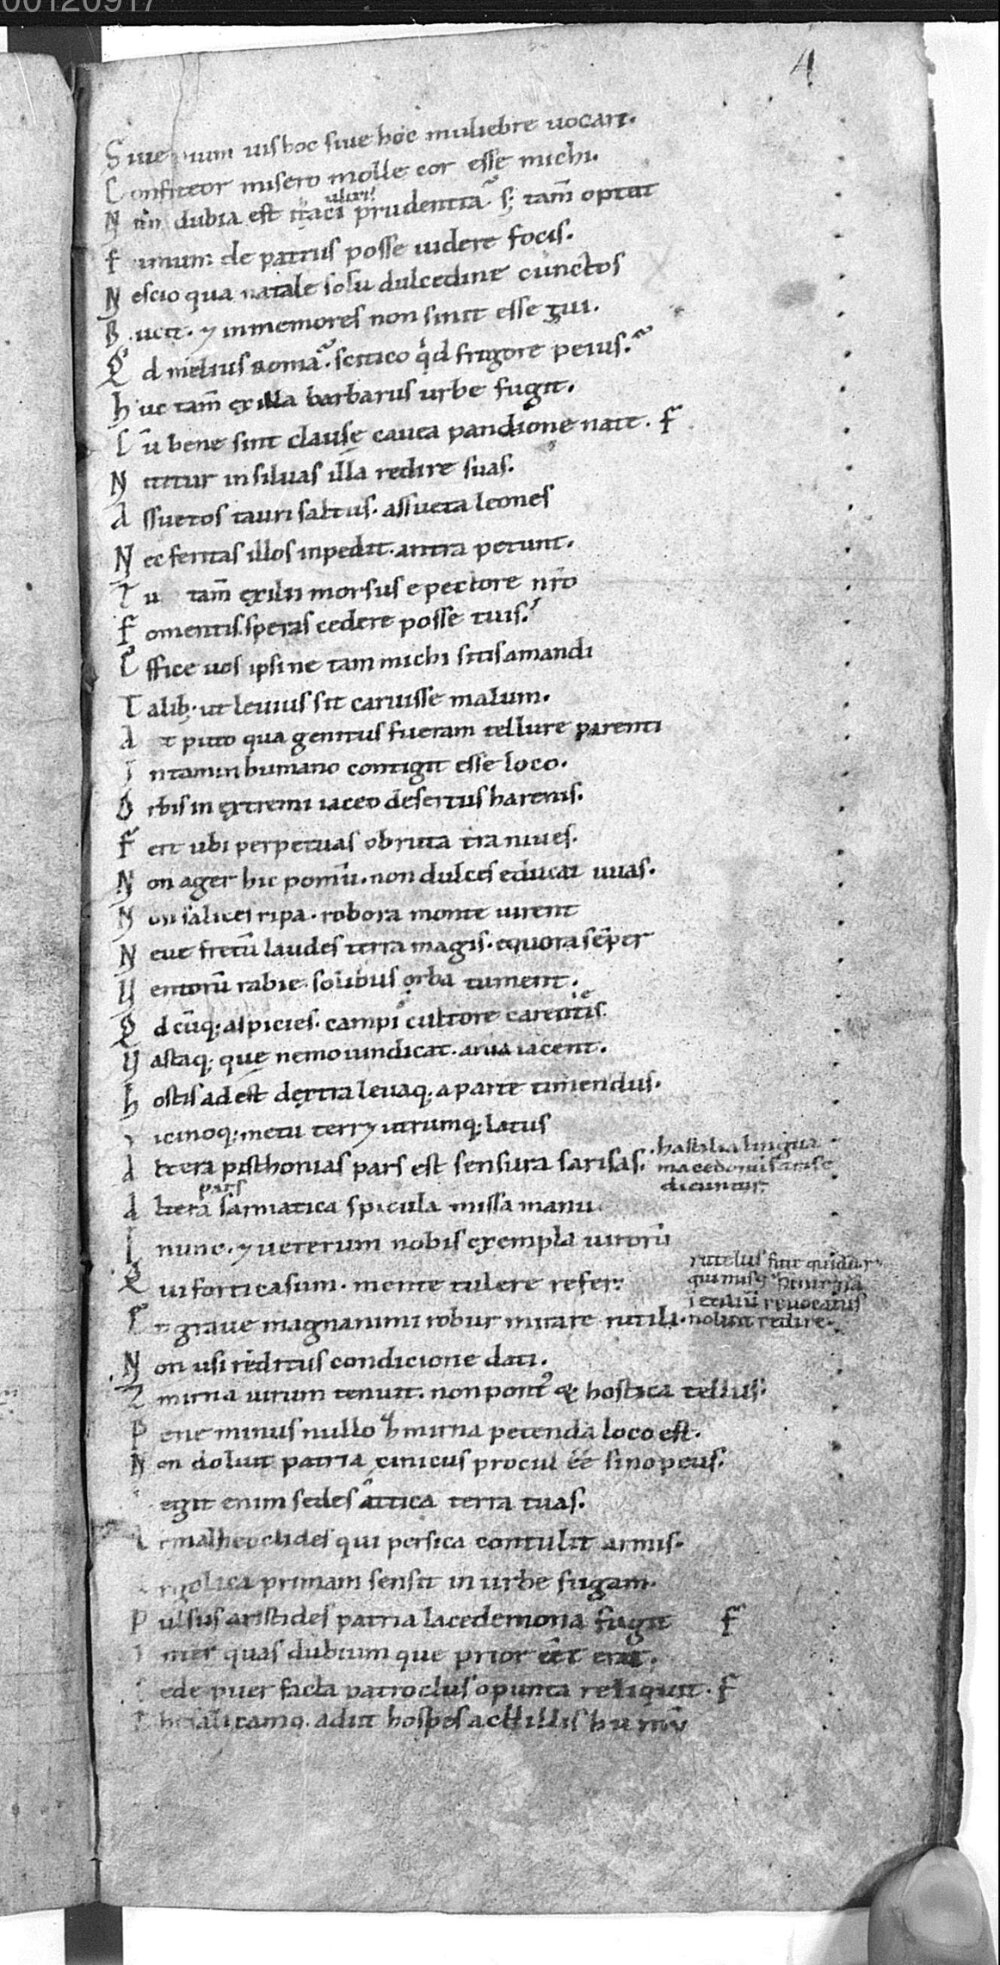 00120917
4
Siue pium uis hoc siue hoc muliebre uocari.
Confiteor misero molle cor esse michi.
ulixis
Non dubia est itaci prudentia. s; tam̄ optat
fumum de patriis posse uidere focis.
Nescio qua natale solū dulcedine cunctos
Ducit. ⁊ inmemores non sinit esse sui.
Qd melius roma. scitico qd frigore peius.
huc tam̄ ex illa barbarus urbe fugit.
Cū bene sint clausę cauea pandione nate. f
Nititur in siluas illa redire suas.
Assuetos tauri saltus. assueta leones
Nec feritas illos inpedit. antra petunt.
Tu tam̄ exilii morsus e pectore nr̄o
Fomentis speras cedere posse tuis.
Effice uos ipsi ne tam michi sitis amandi
Talib; ut leuius sit caruisse malum.
At puto qua genitus fueram tellure parenti
In tamin humano contigit esse loco.
Orbis in extremi iaceo desertus harenis.
Fert ubi perpetuas obruta tr̄a niues.
Non ager hic pomū. non dulces educat uuas.
Non salices ripa. robora monte uirent
Neue fretū laudes terra magis. equora sēper
Uentorū rabie. solibus orba tument.
Qdcūq; aspicies. campi cultore carentis
Uastaq; que nemo uindicat. arua iacent.
hostis adest dextra leuaq; a parte timendus.
icinoq; metu terr⁊ utrumq; latus
Altera pisthonias pars est sensura sarisas.
hastalia lingua
macedonū sarise
dicuntur.
pars
Altera sarmatica spicula missa manu.
I nunc. ⁊ ueterum nobis exempla uirorū
Qui forti casum. mente tulere refer.
Et graue magnanimi robur mirare rutili.
rutelus fuit quidā
exiliū reuocatus
noluit redire.
Non usi reditus condicione dati.
Zmirna uirum tenuit. non pont᷒ & hostica tellus.
Pene minus nullo zmirna petenda loco est.
Non doluit patria cinicus procul ēē sinopeus.
egit enim sedes attica terra tuas.
qui persica contulit armis.
rgolica primam sensit in urbe fugam.
Pulsus aristides patria lacedemona fugit f
Inter quas dubium que prior eēt erat.
Cede puer facta patroclus opunta reliquit. f
Thesalicamq. adiit hospes achillis humū